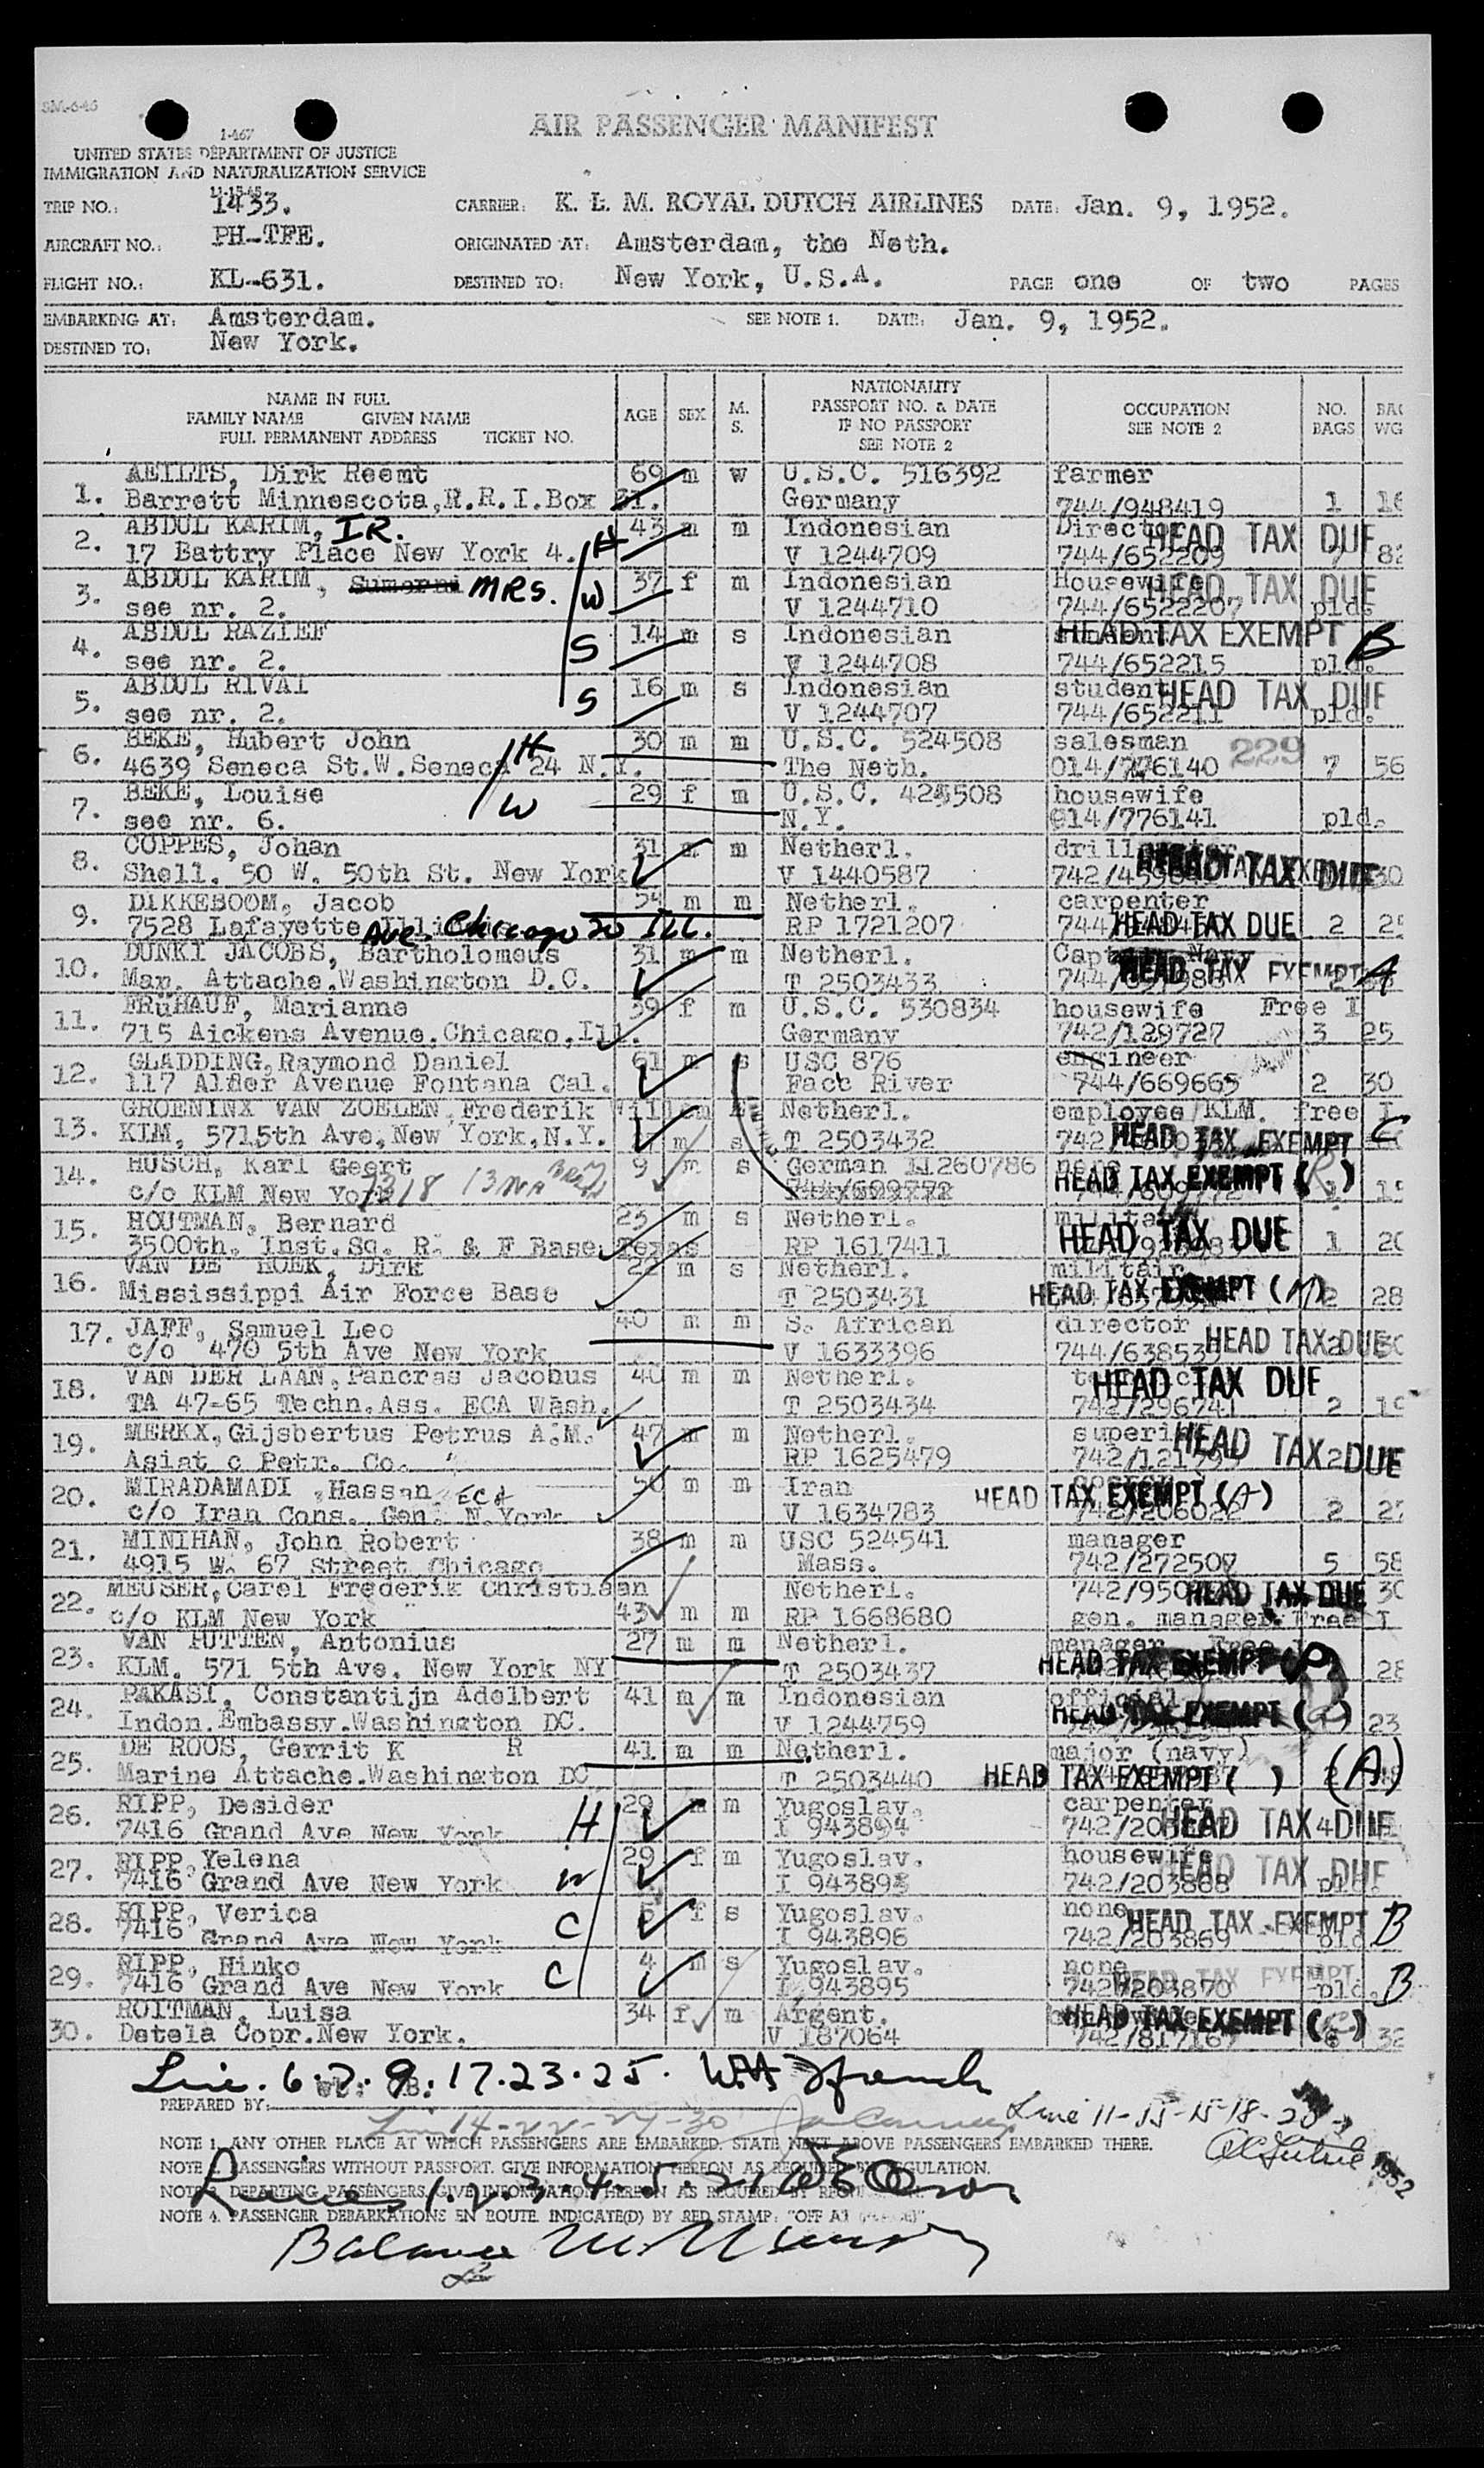 SM-6-46
1-467
AIR PASSENGER MANIFEST
UNITED STATES DEPARTMENT OF JUSTICE
IMMIGRATION AND NATURALIZATION SERVICE
11-15-45
TRIP NO.: 1433. CARRIER: K. L. M. ROYAL DUTCH AIRLINES DATE: Jan. 9, 1952.
AIRCRAFT NO.: PH-TFE. ORIGINATED AT: Amsterdam, the Neth.
FLIGHT NO.: KL-631. DESTINED TO: New York, U.S.A. PAGE one OF two PAGES
EMBARKING AT: Amsterdam. SEE NOTE 1. DATE: Jan. 9, 1952.
DESTINED TO: New York.
NAME IN FULL
FAMILY NAME GIVEN NAME
FULL PERMANENT ADDRESS TICKET NO.
AGE SEX M. S.
NATIONALITY
PASSPORT NO. & DATE
IF NO PASSPORT
SEE NOTE 2
OCCUPATION
SEE NOTE 2
NO. BAGS
BAG WG
1. AEILTS, Dirk Reemt 69 m w U.S.C. 516392 farmer
Barrett Minnescota, R.R.I.Box 31. Germany 744/948419 1 16
2. ABDUL KARIM, IR. H 43 m m Indonesian Director HEAD TAX DUE
17 Battry Place New York 4. V 1244709 744/652209 82
3. ABDUL KARIM, MRS. W 37 f m Indonesian Housewife HEAD TAX DUE
see nr. 2. V 1244710 744/6522207 pld.
4. ABDUL RAZIEF S 14 m s Indonesian HEAD TAX EXEMPT B
see nr. 2. V 1244708 744/652215 pld.
5. ABDUL RIVAI S 16 m s Indonesian student HEAD TAX DUE
see nr. 2. V 1244707 744/652211 pld.
6. BEKE, Hubert John H 30 m m U.S.C. 524508 salesman 229
4639 Seneca St.W.Seneca 24 N.Y. The Neth. 014/776140 7 56
7. BEKE, Louise W 29 f m U.S.C. 424508 housewife
see nr. 6. N.Y. 014/776141 pld.
8. COPPES, Johan 31 m m Netherl.
Shell. 50 W. 50th St. New York V 1440587 30
9. DIKKEBOOM, Jacob 54 m m Netherl. carpenter
7528 Lafayette Ave. Chicago 20 ILL. RP 1721207 HEAD TAX DUE 2
10. DUNKI JACOBS, Bartholomeus 31 m m Netherl. Navy
Mar. Attache.Washington D.C. T 2503433 HEAD TAX EXEMPT A
11. FRüHAUF, Marianne 39 f m U.S.C. 530834 housewife Free I
715 Aickens Avenue.Chicago,Ill. Germany 742/129727 3 25
12. GLADDING,Raymond Daniel 61 m s USC 876 engineer
117 Alder Avenue Fontana Cal. Face River 744/669665 2 30
13. GROENINX VAN ZOELEN Frederik Willem Netherl. employee KLM. free I
KLM, 5715th Ave, New York, N.Y. m s T 2503432 HEAD TAX EXEMPT C
14. HUSCH, Karl Geert 9 m s German none
c/o KLM New York HEAD TAX EXEMPT (R)
15. HOUTMAN, Bernard 23 m s Netherl.
3500th. Inst.Sq. R. & F Base, Texas RP 1617411 HEAD TAX DUE 1 20
16. VAN DE HOEK, Dirk 22 m s Netherl. militair
Mississippi Air Force Base T 2503431 HEAD TAX EXEMPT (A) 2 28
17. JAFF, Samuel Leo 40 m m S. African director
c/o 470 5th Ave New York V 1633396 HEAD TAX DUE
18. VAN DER LAAN, Pancras Jacobus 40 m m Netherl. HEAD TAX DUE
TA 47-65 Techn.Ass. ECA Wash. T 2503434 742/296741 2 19
19. MERKX, Gijsbertus Petrus A.M. 47 m m Netherl. HEAD TAX DUE
Asiat c Petr. Co. RP 1625479 2
20. MIRADAMADI, Hassan ECA 50 m m Iran
c/o Iran Cons. Gen. N.York V 1634783 HEAD TAX EXEMPT (A) 742/206022 2 27
21. MINIHAN, John Robert 38 m m USC 524541 manager
4915 W. 67 Street Chicago Mass. 742/272507 5 58
22. MEUSER, Carel Frederik Christiaan Netherl. HEAD TAX DUE 30
c/o KLM New York 43 m m RP 1668680 gen. manager. Free I
23. VAN PUTTEN, Antonius 27 m m Netherl. manager Free I
KLM. 571 5th Ave. New York NY T 2503437 HEAD TAX EXEMPT 28
24. PAKASI, Constantijn Adelbert 41 m m Indonesian official
Indon.Embassy.Washington DC. V 1244759 HEAD TAX EXEMPT 23
25. DE ROOS, Gerrit K R 41 m m Netherl. major (navy)
Marine Attache.Washington DC T 2503440 HEAD TAX EXEMPT ( ) (A)
26. RIPP, Desider H 29 m m Yugoslav. carpenter
7416 Grand Ave New York I 943894 HEAD TAX DUE 4
27. RIPP, Yelena W 29 f m Yugoslav. housewife
7416 Grand Ave New York I 943893 742/203868 HEAD TAX DUE pld.
28. RIPP, Verica C 5 f s Yugoslav. none HEAD TAX EXEMPT B
7416 Grand Ave New York I 943896 742/203869 pld.
29. RIPP, Hinko C 4 m s Yugoslav. none HEAD TAX EXEMPT
7416 Grand Ave New York I 943895 742/203870 pld. B
30. ROITMAN, Luisa 34 f m Argent. HEAD TAX EXEMPT
Detela Copr.New York. V 187064 742/817167 32
Line. 6.7.9.17.23.25.
PREPARED BY:
Line 14-22-24-30
Line 11-13-15-18-20
NOTE 1. ANY OTHER PLACE AT WHICH PASSENGERS ARE EMBARKED. STATE NEXT ABOVE PASSENGERS EMBARKED THERE.
NOTE 2. PASSENGERS WITHOUT PASSPORT. GIVE INFORMATION HEREON AS REQUIRED BY REGULATION.
NOTE 3. DEPARTING PASSENGERS. GIVE INFORMATION HEREON AS REQUIRED BY
Lines 1.2.3.4.5.21
NOTE 4. PASSENGER DEBARKATIONS EN ROUTE INDICATE(D) BY RED STAMP: "OFF AT
1952
Balance